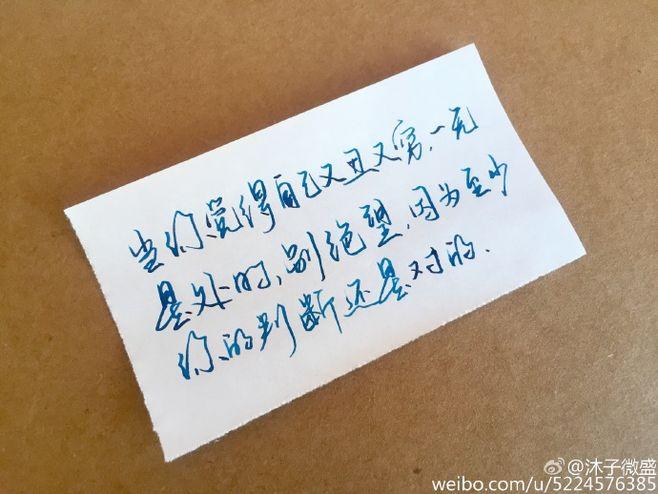 当你觉得自己又丑又穷,一无
是处时,别绝望,因为至少
你的判断还是对的.
@沐子微盛
weibo.com/u/5224576385